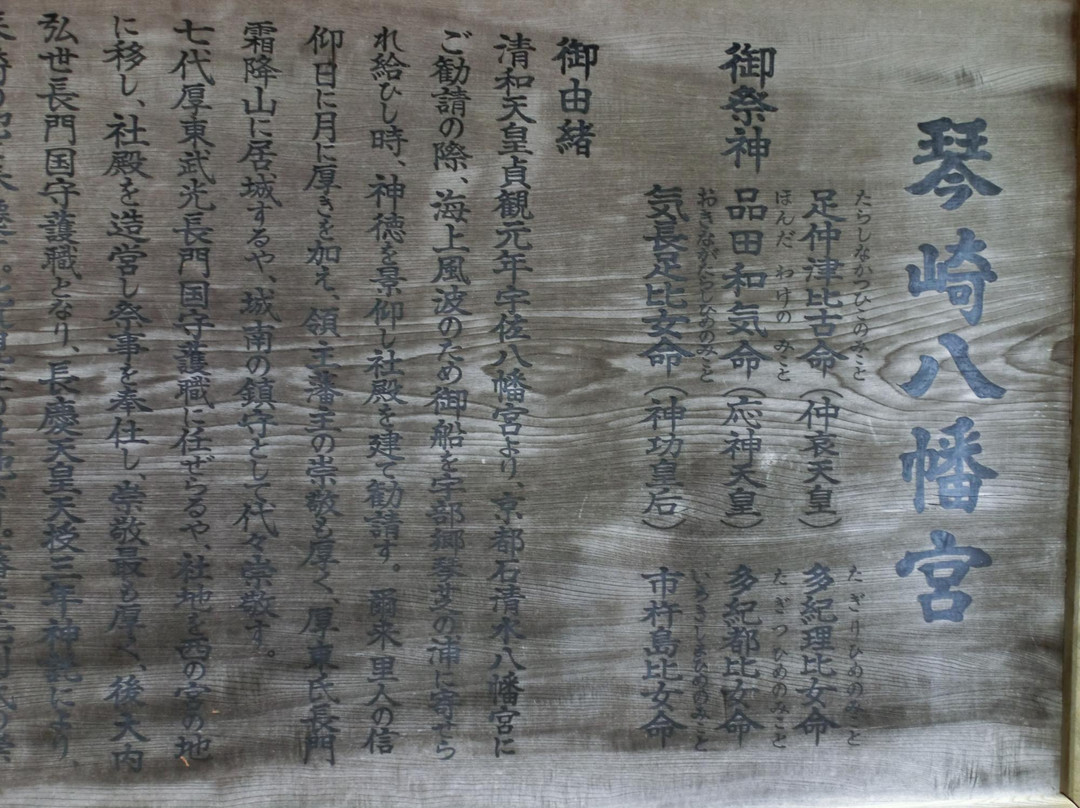 琴崎八幡宮
御祭神
たらしなかつひこのみこと
足仲津比古命（仲哀天皇）
ほんだ わけの みこと
品田和気命（応神天皇）
おきながたらしひめのみこと
気長足比女命（神功皇后）
たぎりひめのみこと
多紀理比女命
たぎつひめのみこと
多紀都比女命
いちきしまひめのみこと
市杵島比女命
御由緒
清和天皇貞観元年宇佐八幡宮より、京都石清水八幡宮に
ご勧請の際、海上風波のため御船を宇部郷琴芝の浦に寄せら
れ給ひし時、神徳を景仰し社殿を建て勧請す。爾来里人の信
仰日に月に厚きを加え、領主藩主の崇敬も厚く、厚東氏長門
霜降山に居城するや、城南の鎮守として代々崇敬す。
七代厚東武光長門国守護職に任ぜらるや、社地を西の宮の地
に移し、社殿を造営し祭事を奉仕し、崇敬最も厚く、後大内
弘世長門国守護職となり、長慶天皇天授三年神託により、